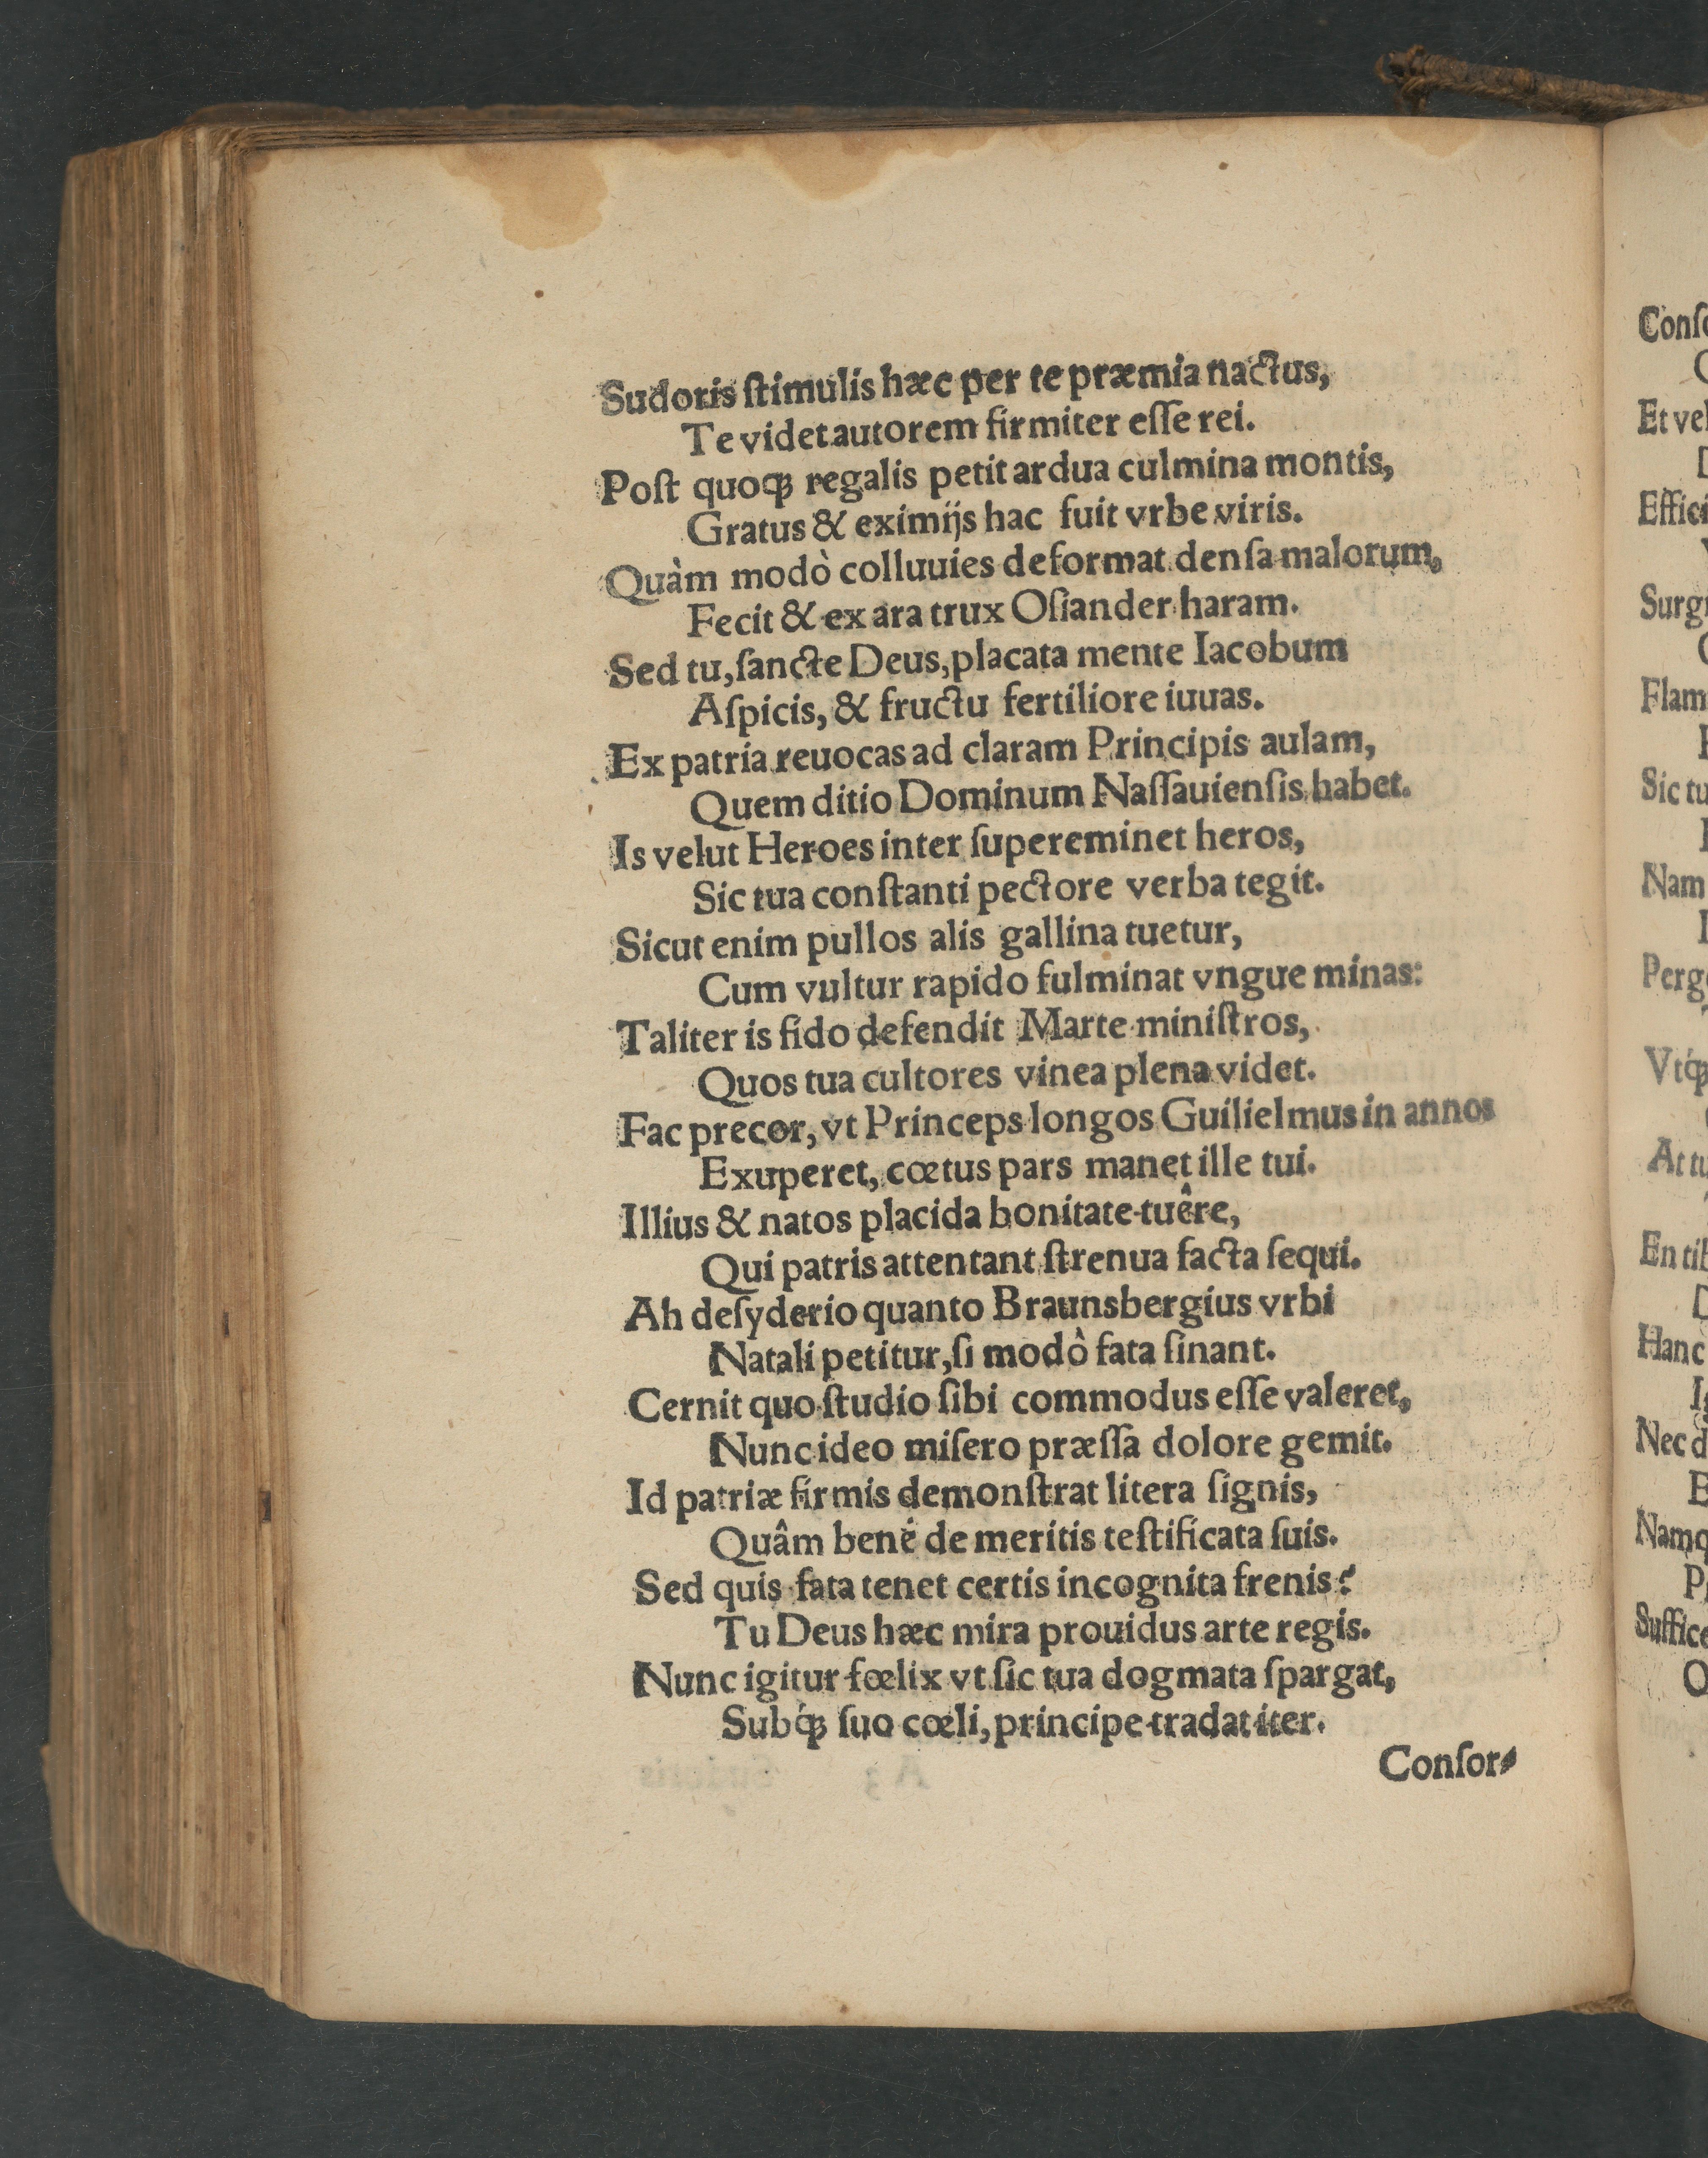 Sudoris ſtimulis hæc per te præmia nactus,
Te videt autorem firmiter eſſe rei.
Poſt quoqꝫ regalis petit ardua culmina montis,
Gratus & eximijs hac fuit vrbe viris.
Quàm modò colluuies deformat denſa malorum,
Fecit & ex ara trux Oſiander haram.
Sed tu, ſancte Deus, placata mente Iacobum
Aſpicis, & fructu fertiliore iuuas.
Ex patria reuocas ad claram Principis aulam,
Quem ditio Dominum Naſſauienſis habet.
Is velut Heroes inter ſupereminet heros,
Sic tua conſtanti pectore verba tegit.
Sicut enim pullos alis gallina tuetur,
Cum vultur rapido fulminat vngue minas:
Taliter is fido defendit Marte miniſtros,
Quos tua cultores vinea plena videt.
Fac precor, vt Princeps longos Guilielmus in annos
Exuperet, cœtus pars manet ille tui.
Illius & natos placida bonitate tuêre,
Qui patris attentant ſtrenua facta ſequi.
Ah deſyderio quanto Braunsbergius vrbi
Natali petitur, ſi modò fata ſinant.
Cernit quo ſtudio ſibi commodus eſſe valeret,
Nunc ideo miſero præſſa dolore gemit.
Id patriæ firmis demonſtrat litera ſignis,
Quâm bené de meritis teſtificata ſuis.
Sed quis fata tenet certis incognita frenis?
Tu Deus hæc mira prouidus arte regis.
Nunc igitur fœlix vt ſic tua dogmata ſpargat,
Subqꝫ́ ſuo cœli, principe tradat iter.
Conſor⸗
Et vel
Surg
Flam
Sic tu
Nam
Perg
Vtqꝫ́
At tu
En tib
Hanc
Nec d
Namq
Suffice